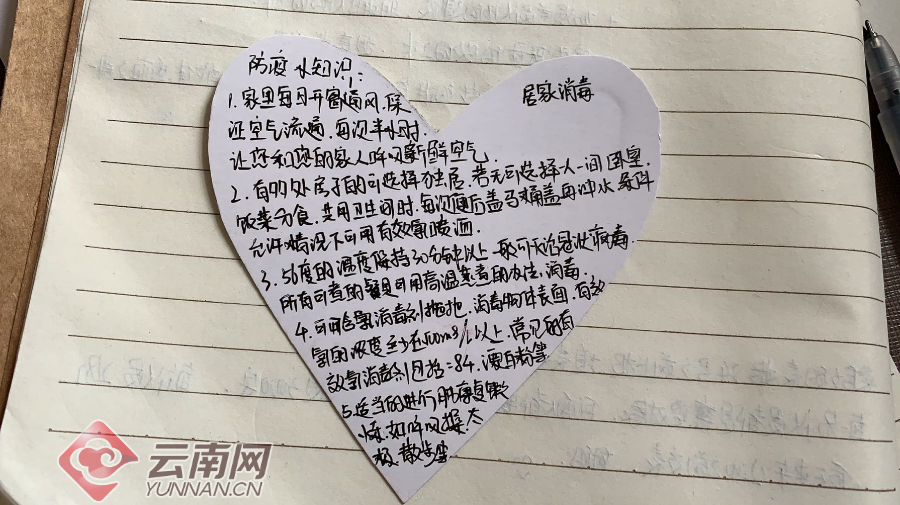 防疫小知识:
居家消毒
1.家里每日开窗通风,保
证空气流通,每次半小时,
让您和您的家人呼吸新鲜空气.
2.有多处房子的可选择独居,若无可选择人一间卧室,
饭菜分食,共用卫生间时,每次便后盖马桶盖再冲水,条件
允许情况下可用有效氯喷洒.
3.56度的温度保持30分钟以上一般可灭活冠状病毒.
所有可煮的餐具可用高温煮煮的方法,消毒.
4.可用含氯消毒剂拖地,消毒物体表面,有效
氯的浓度至少在500mg/L以上,常见的有
效氯消毒剂包括:84,漂白粉等
5.适当的进行肺康复锻
炼,如呼吸操,太
极,散步等
云南网
YUNNAN.CN